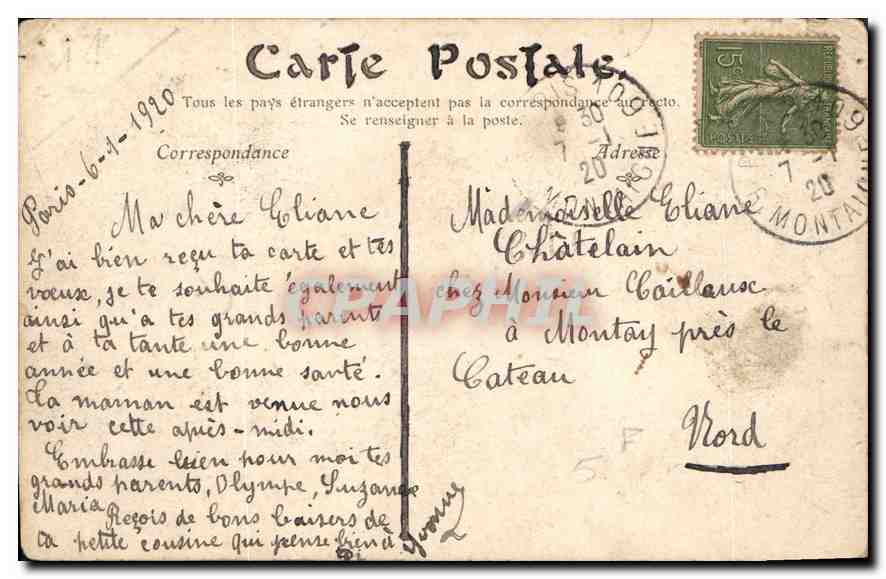 Carte Postale.
Tous les pays étrangers n'acceptent pas la correspondance au recto.
Se renseigner à la poste.
Correspondance
Adresse
Paris-6-1-1920
Ma chère Eliane
J'ai bien reçu ta carte et tes
voeux, je te souhaite également
ainsi qu'a tes grands parents
et à ta tante une bonne
année et une bonne santé.
Ta maman est venue nous
voir cette après-midi.
Embrasse bien pour moi tes
grands parents, Olympe, Suzanne
Maria
Reçois de bons baisers de
ta petite cousine qui pense bien à
Yvonne
Mademoiselle Eliane
Châtelain
chez Monsieur Caillaux
à Montay près le
Cateau
Nord
5 F
15c
POSTES
30
7-1
20
7-1
20
MONTAIGNE
CPAPHIL